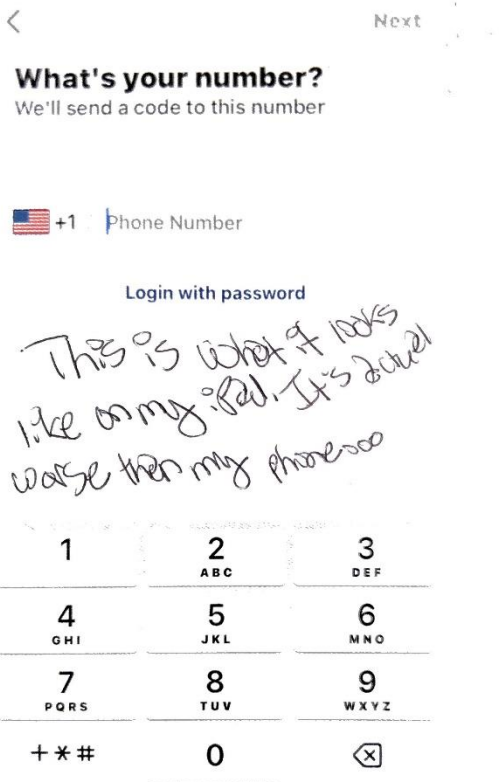 Next
What's your number?
We'll send a code to this number
+1 Phone Number
Login with password
This is what it looks
like on my iPad. It's actual
worse then my phone
1 2 3
ABC DEF
4 5 6
GHI JKL MNO
7 8 9
PQRS TUV WXYZ
+*# 0